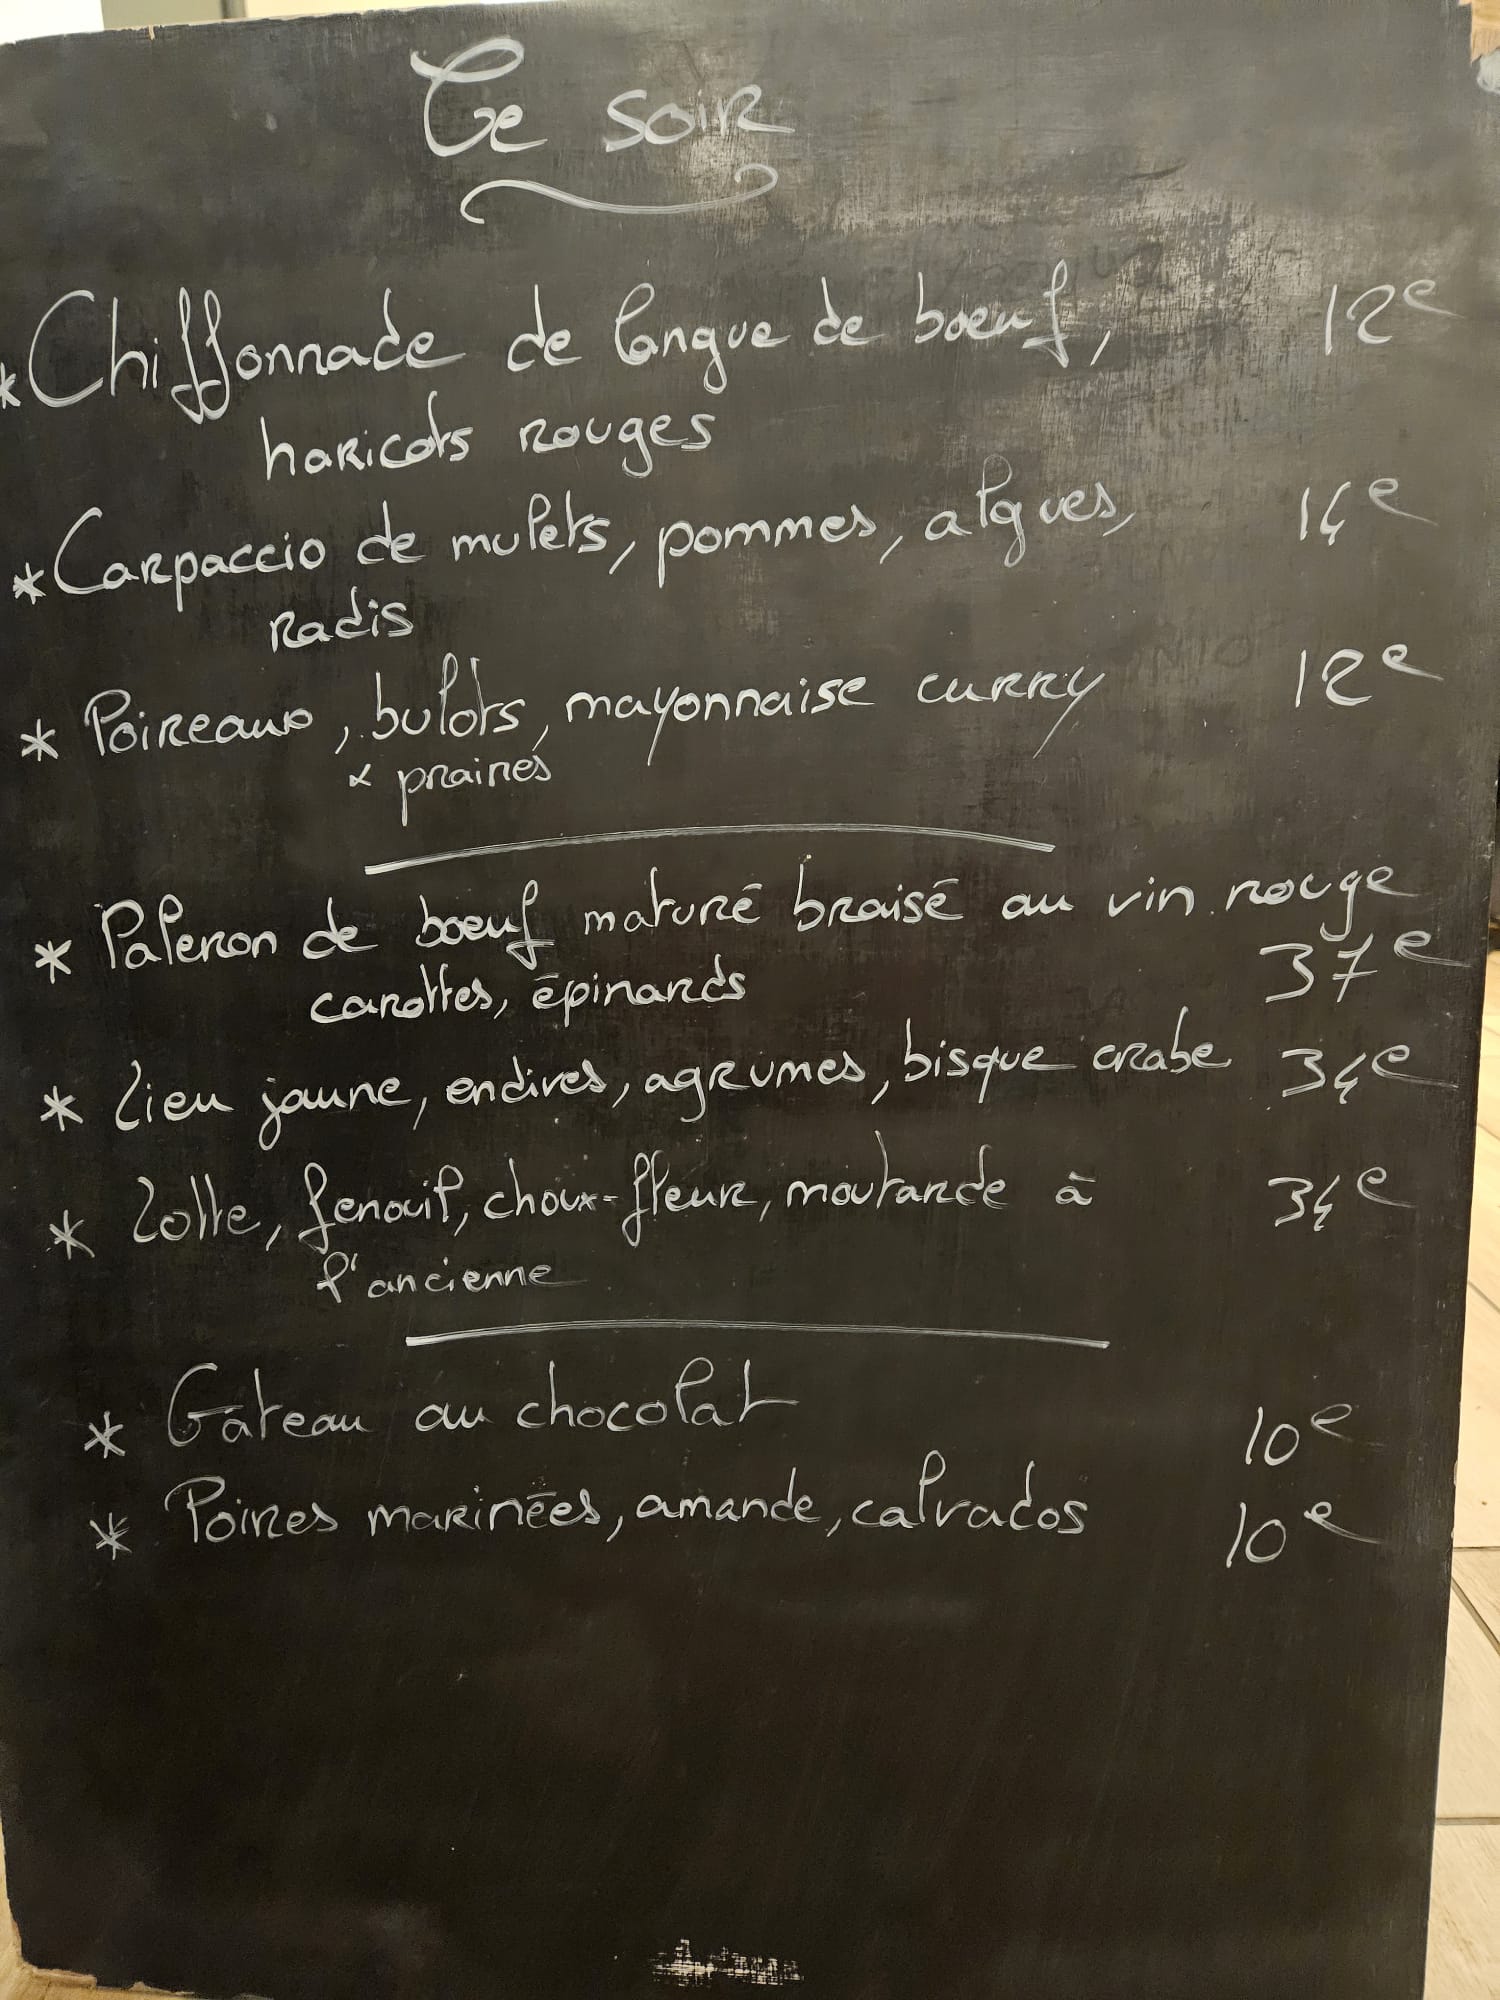 Ce soir
* Chiffonnade de langue de boeuf, 12e
haricots rouges
* Carpaccio de mulets, pommes, algues, 14e
radis
* Poireaux, bulots, mayonnaise curry 12e
& praires
* Paleron de boeuf maturé braisé au vin rouge
carottes, épinards 37e
* Lieu jaune, endives, agrumes, bisque crabe 34e
* Lotte, fenouil, choux-fleur, moutarde à 34e
l'ancienne
* Gâteau au chocolat 10e
* Poires marinées, amande, calvados 10e